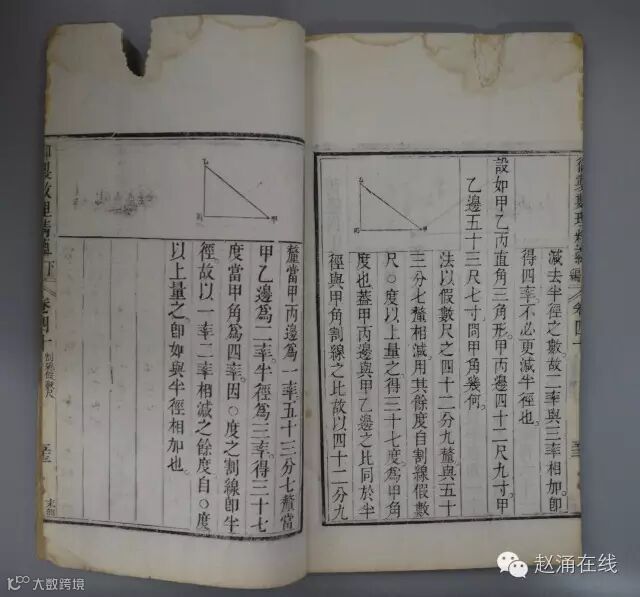 減去半徑之數。故二率與三率相加。即
得四率。不必更減半徑也。
設如甲乙丙直角三角形。甲丙邊四十二尺九寸。甲
乙邊五十三尺七寸。問甲角幾何。
法以假數尺之四十二分九釐與五十
三分七釐相減。用其餘度自割線假數
尺。○度以上量之。得三十七度。爲甲角
度也。蓋甲丙邊與甲乙邊之比同於半
徑與甲角割線之比。故以四十二分九
卷四十
釐當甲丙邊爲一率。五十三分七釐當
甲乙邊爲二率。半徑爲三率。得三十七
度當甲角爲四率。因○度之割線卽半
徑。故以一率二率相減之餘度自○度
以上量之。卽如與半徑相加也。
數理精蘊下
大数跨境
赵涌在线